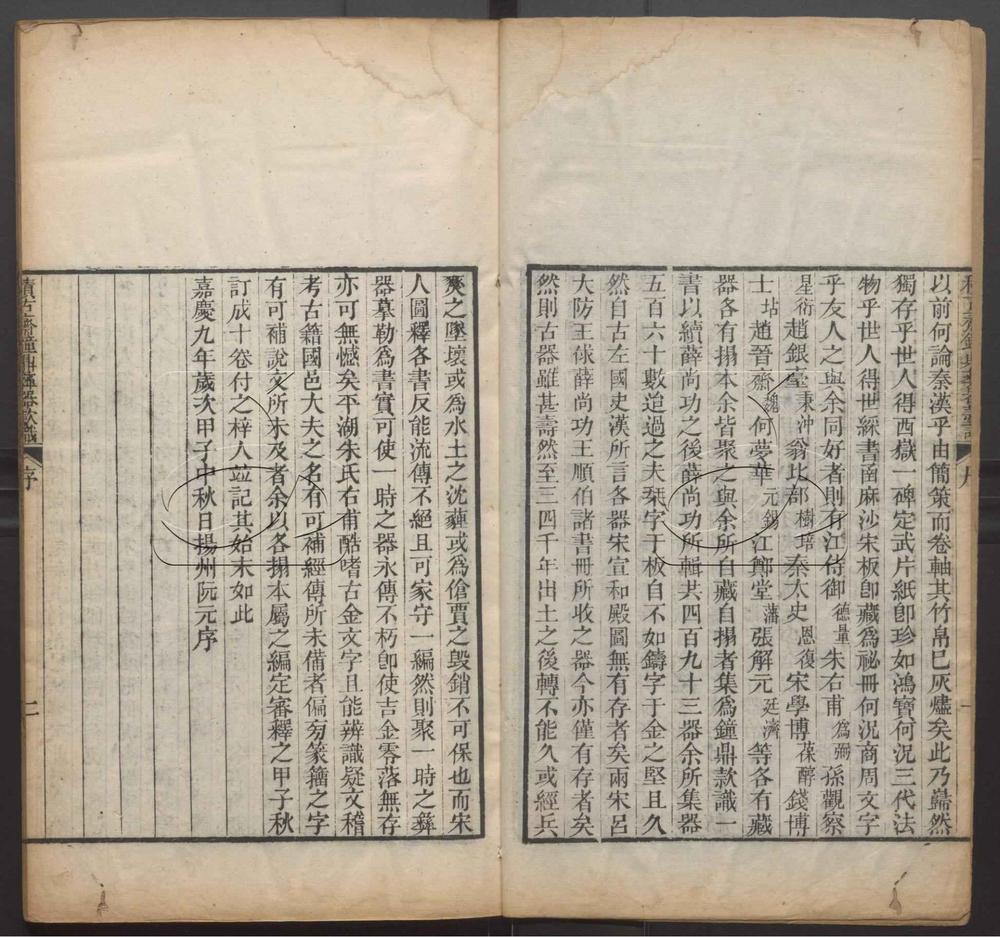 積古齋鐘鼎彝器款識
序
一
以前何論秦漢乎由簡策而卷軸其竹帛已灰燼矣此乃巋然
獨存乎世人得西嶽一碑定武片紙卽珍如鴻寶何況三代法
物乎世人得世綵書函麻沙宋板卽藏爲祕冊何況商周文字
乎友人之與余同好者則有江侍御德量朱右甫爲弼孫觀察
星衍趙銀臺秉沖翁比部樹培秦太史恩復宋學博葆醇錢博
士坫趙晉齋魏何夢華元錫江鄭堂藩張解元廷濟等各有藏
器各有搨本余皆聚之與余所自藏自搨者集爲鐘鼎款識一
書以續薛尚功之後薛尚功所輯共四百九十三器余所集器
五百六十數迨過之夫棨字于板自不如鑄字于金之堅且久
然自古左國史漢所言各器宋宣和殿圖無有存者矣兩宋呂
大防王俅薛尚功王順伯諸書冊所收之器今亦僅有存者矣
然則古器雖甚壽然至三四千年出土之後轉不能久或經兵
燹之墜壞或爲水土之沈薶或爲傖賈之毀銷不可保也而宋
人圖釋各書反能流傳不絕且可家守一編然則聚一時之彝
器摹勒爲書實可使一時之器永傳不朽卽使吉金零落無存
亦可無憾矣平湖朱氏右甫酷嗜古金文字且能辨識疑文稽
考古籍國邑大夫之名有可補經傳所未備者偏㫄篆籀之字
有可補說文所未及者余以各搨本屬之編定審釋之甲子秋
訂成十卷付之梓人竝記其始末如此
嘉慶九年歲次甲子中秋日揚州阮元序
積古齋鐘鼎彝器款識
序
二